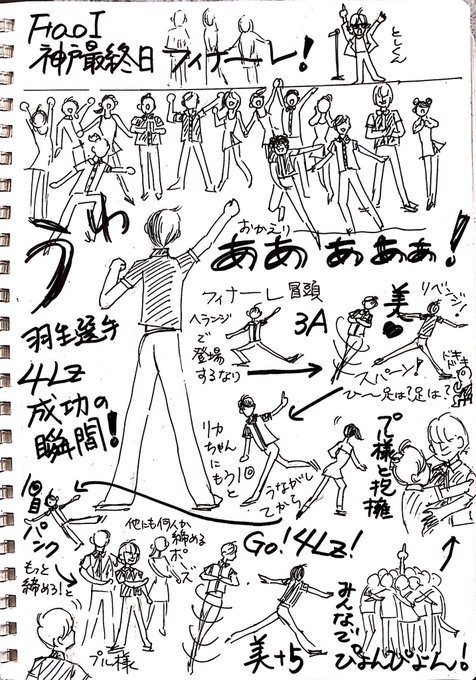 FaoI
神戸最終日 フィナーレ!
としくん
うわ
おかえり
ああああぁ!
羽生選手
4Lz
成功の
瞬間!
フィナーレ冒頭
ヘランジ
で
登場
するなり
3A
美
リベンジ!
スパーン!
ドキドキ
ひ〜足は?足は?
リカ
ちゃん
にもう1回と
うながし
てから
プル様と抱擁
1回目
パンク
もっと
締めろ!と
他にも何人か締める
ポーズ
プル様
Go!4Lz!
美+5
みんなで
ぴょんぴょん!